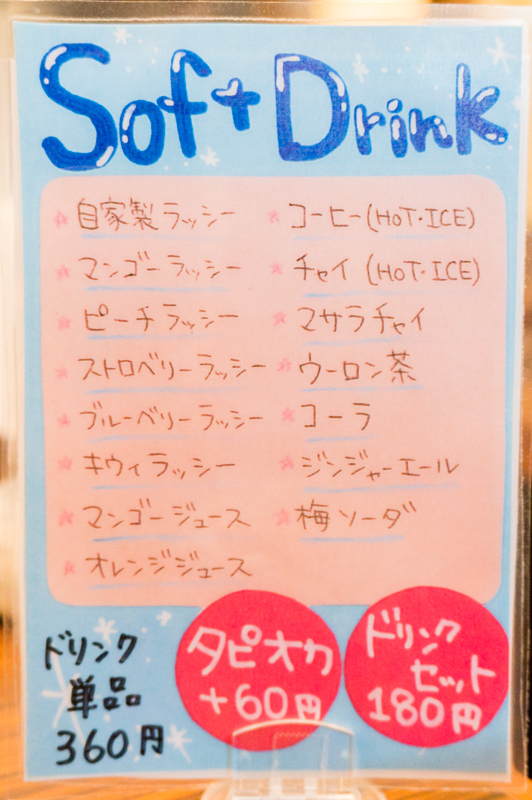 Soft Drink
自家製ラッシー
マンゴーラッシー
ピーチラッシー
ストロベリーラッシー
ブルーベリーラッシー
キウィラッシー
マンゴージュース
オレンジジュース
コーヒー(HOT・ICE)
チャイ(HOT・ICE)
マサラチャイ
ウーロン茶
コーラ
ジンジャーエール
梅ソーダ
ドリンク
単品
360円
タピオカ
+60円
ドリンク
セット
180円